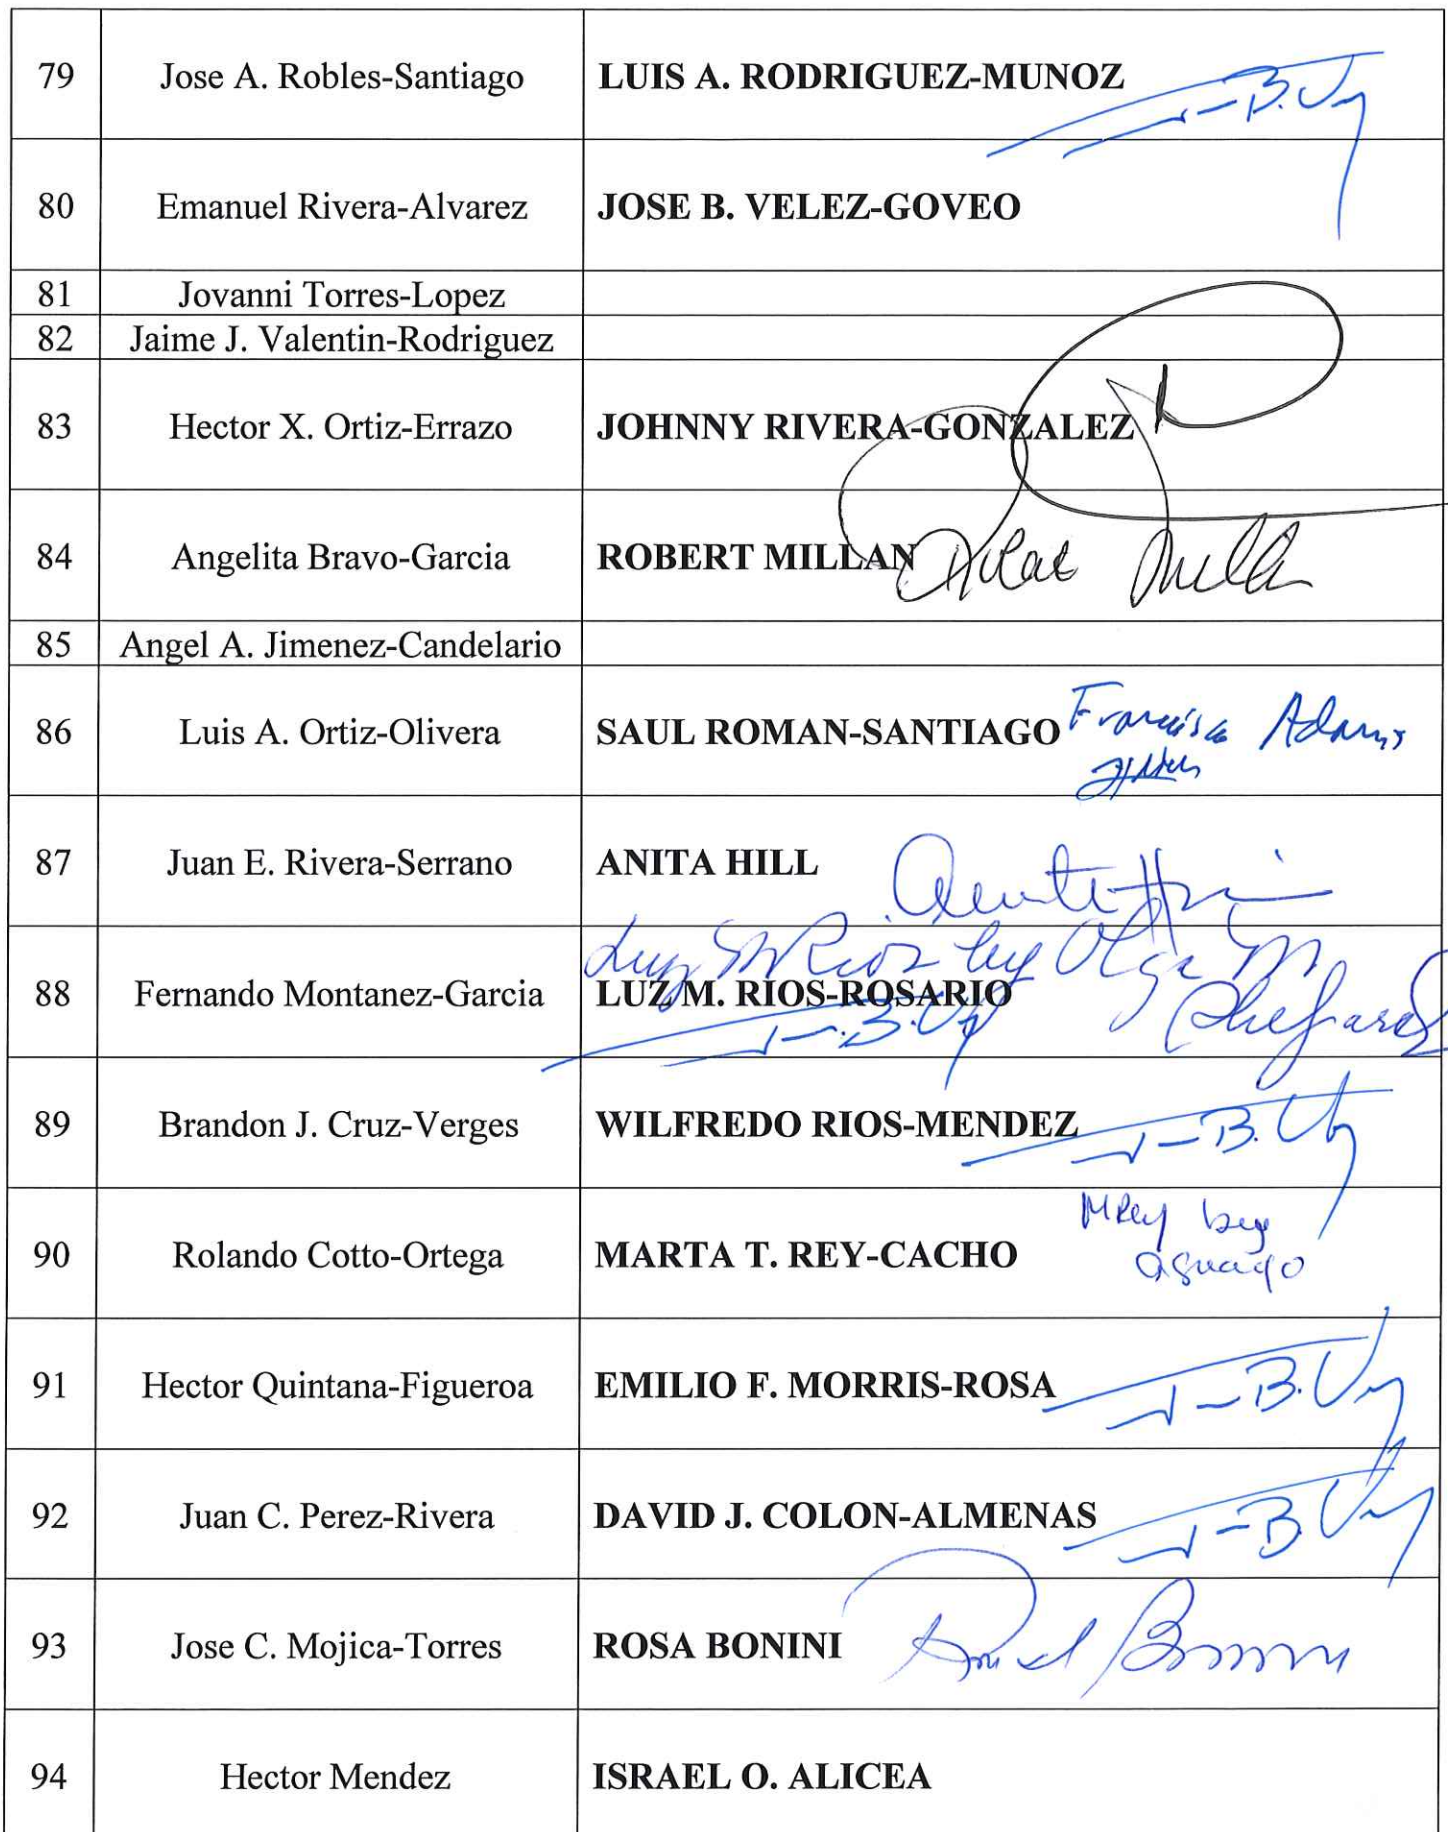 79 Jose A. Robles-Santiago LUIS A. RODRIGUEZ-MUNOZ
80 Emanuel Rivera-Alvarez JOSE B. VELEZ-GOVEO
81 Jovanni Torres-Lopez
82 Jaime J. Valentin-Rodriguez
83 Hector X. Ortiz-Errazo JOHNNY RIVERA-GONZALEZ
84 Angelita Bravo-Garcia ROBERT MILLAN
85 Angel A. Jimenez-Candelario
86 Luis A. Ortiz-Olivera SAUL ROMAN-SANTIAGO Francisco Adams
87 Juan E. Rivera-Serrano ANITA HILL
Luz M Rios by Olga M
88 Fernando Montanez-Garcia LUZ M. RIOS-ROSARIO
89 Brandon J. Cruz-Verges WILFREDO RIOS-MENDEZ
90 Rolando Cotto-Ortega MARTA T. REY-CACHO MRey by
91 Hector Quintana-Figueroa EMILIO F. MORRIS-ROSA
92 Juan C. Perez-Rivera DAVID J. COLON-ALMENAS
93 Jose C. Mojica-Torres ROSA BONINI
94 Hector Mendez ISRAEL O. ALICEA